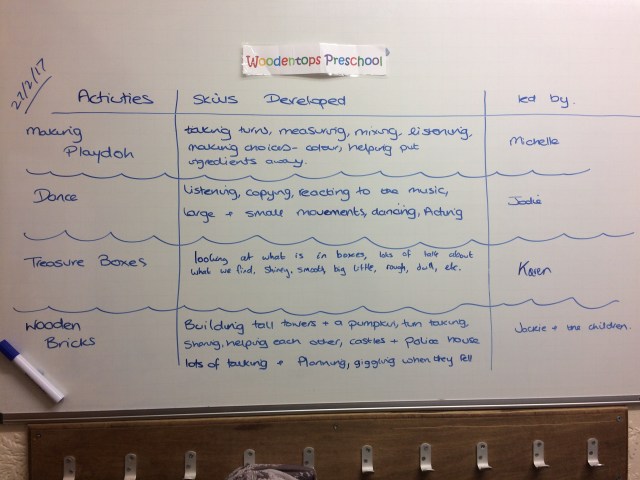 Woodentops Preschool
22/2/17
Activities Skills Developed Led by.
Making Playdoh
taking turns, measuring, mixing, listening,
making choices - colour, helping put
ingredients away.
Michelle
Dance
Listening, copying, reacting to the music,
large + small movements, dancing, Acting
Jodie
Treasure Boxes
looking at what is in boxes, lots of talk about
what we find, shiney, smooth, big little, rough, dull, etc.
Karen
Wooden Bricks
Building tall towers + a pumpkin, turn taking,
Sharing, helping each other, castles + Police house
lots of talking + Planning, giggling when they fell
Jackie + the children.